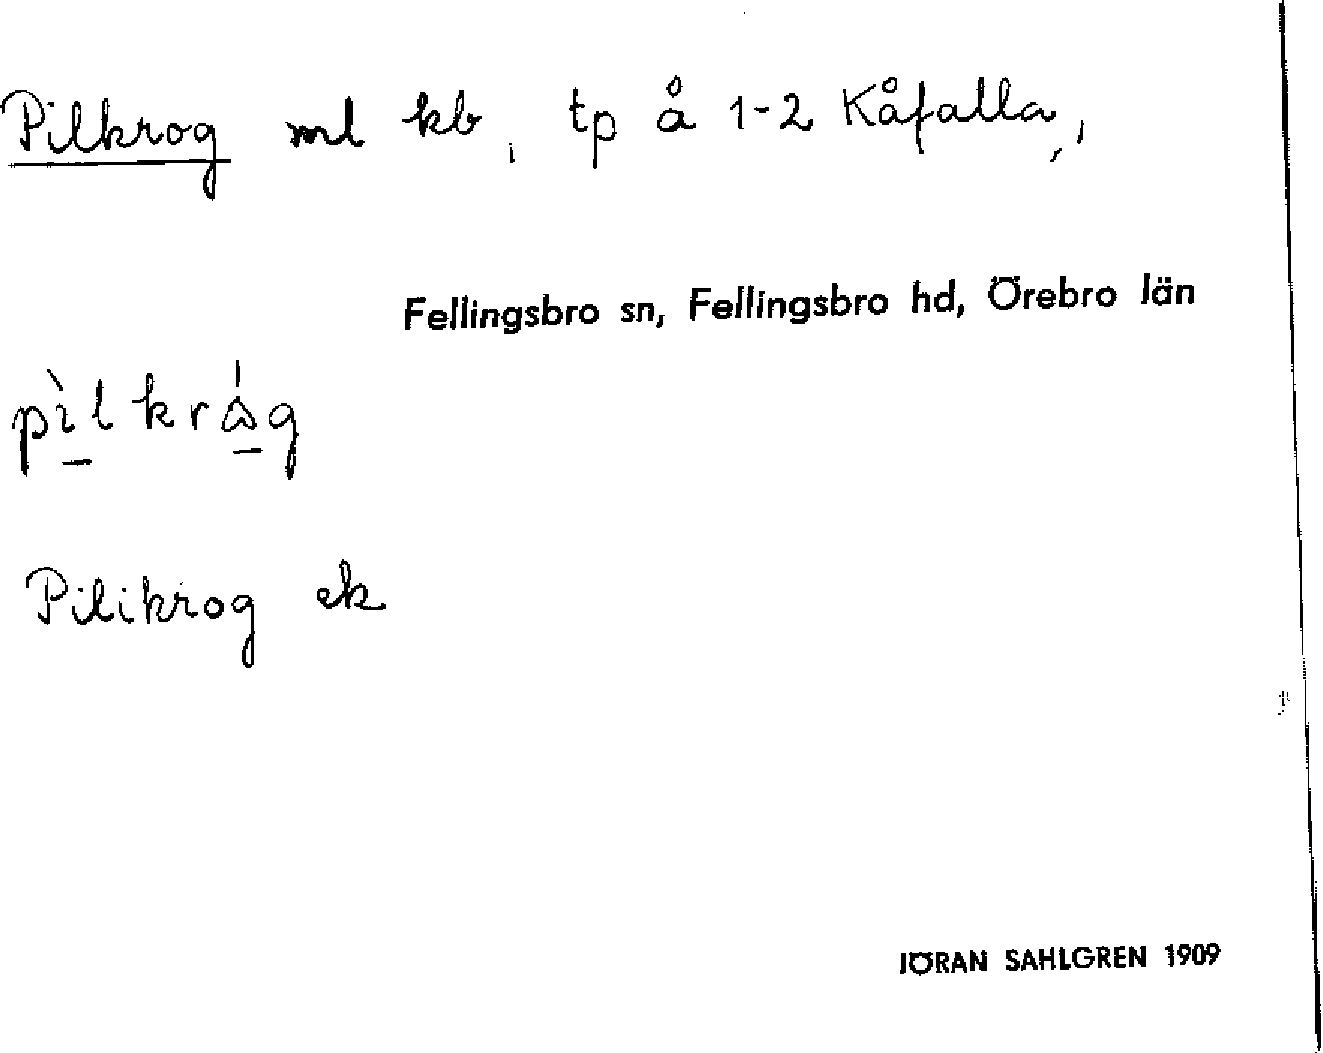 Pilkrog ml kb, tp å 1-2 Kåfalla,,
Fellingsbro sn, Fellingsbro hd, Örebro län
pìlkråg
Pilikrog ek
JÖRAN SAHLGREN 1909